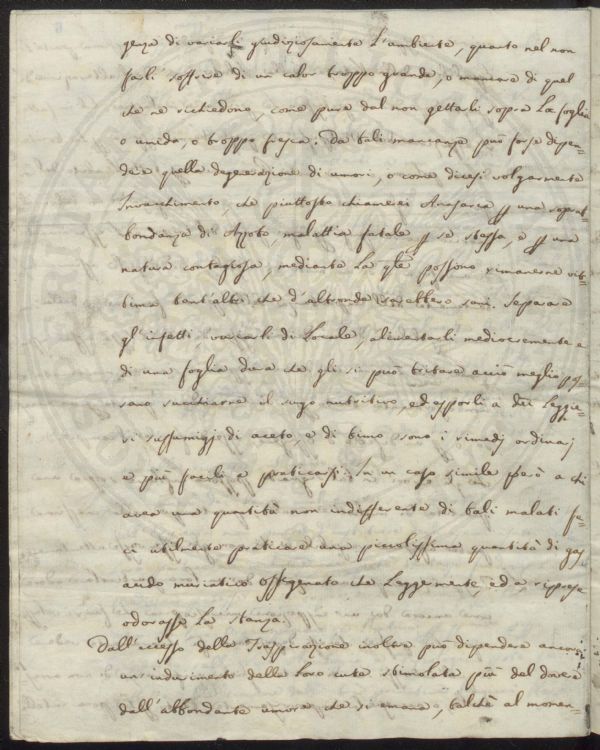 genza di variarli giudiziosamente l'ambiente, quanto nel non
farli soffrire di un calor troppo grande, o mancare di quel
che ne richiedono, come pure dal non gettarli sopra la foglia
o umida, o troppo fresca. Da tali mancanze può forse dipen-
dere quella degenerazione di umori, o come dicesi volgarmente
Invacchimento, che piuttosto chiamerei Anasarca per una soprab-
bondanza di Azoto, malattia fatale per se stessa, e per una
natura contagiosa, mediante la qle possono rimanerne vit-
tima tant'altri che d'altronde sarebbero sani. Separare
gl'infetti variarli di Locale, alimentarli mediocremente e
di una foglia dura che gli si può tritare acciò meglio pos-
sano succhiarne il sugo nutritivo, ed esporli a dei leggie-
ri suffumigj di aceto, e di timo sono i rimedj ordinarj
e più facili a praticarsi. In un caso simile però a chi
avea una quantità non indifferente di tali malati fe-
ci utilmente praticare una piccolissima quantità di gas
acido muriatico ossigenato che leggermente, ed a riprese
odorasse la stanza.
Dall'eccesso della Traspirazione inoltre può dipendere ancora
un indurimento della loro cute stimolata più del dovere
dall'abbondante umore che si emana, talchè al momen-